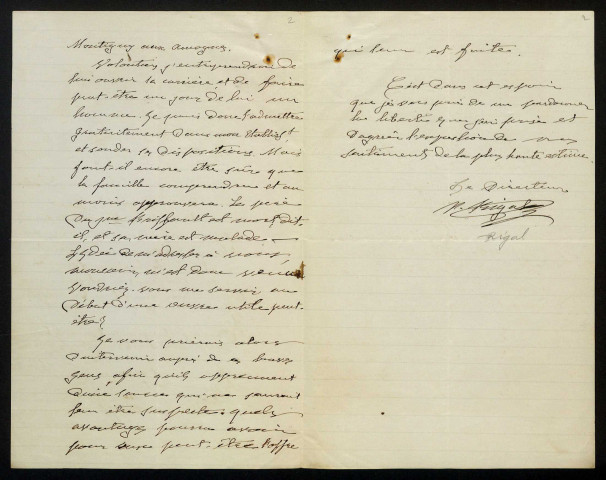 2
Montigny aux Amognes.
Volontiers j'entreprendrais de
lui ouvrir la carrière et de faire
peut-être un jour de lui un
homme. Je puis donc l'admettre
gratuitement dans mon établist
et sonder ses dispositions. Mais
faut-il encore être sûre que
la famille comprendra et au
moins approuvera. Le père
du jne est mort, dit-
il, et sa mère est malade.
L'idée de m'adresser à vous,
monsieur, m'est donc venue
Voudriez-vous me servir au
début d'une œuvre utile peut-
être?
Je vous prierais alors
d'intervenir auprès de ces braves
gens, afin qu'ils apprennent
d'une source qui ne saurait
leur être suspecte quels
avantages pourra avoir
pour eux peut-être l'offre
2
qui leur est faite.
C'est dans cet espoir
que je vous prie de me pardonner
la liberté que j'ai prise et
d'agréer l'expression de mes
sentiments de la plus haute estime.
Le Directeur
Rigal
Rigal